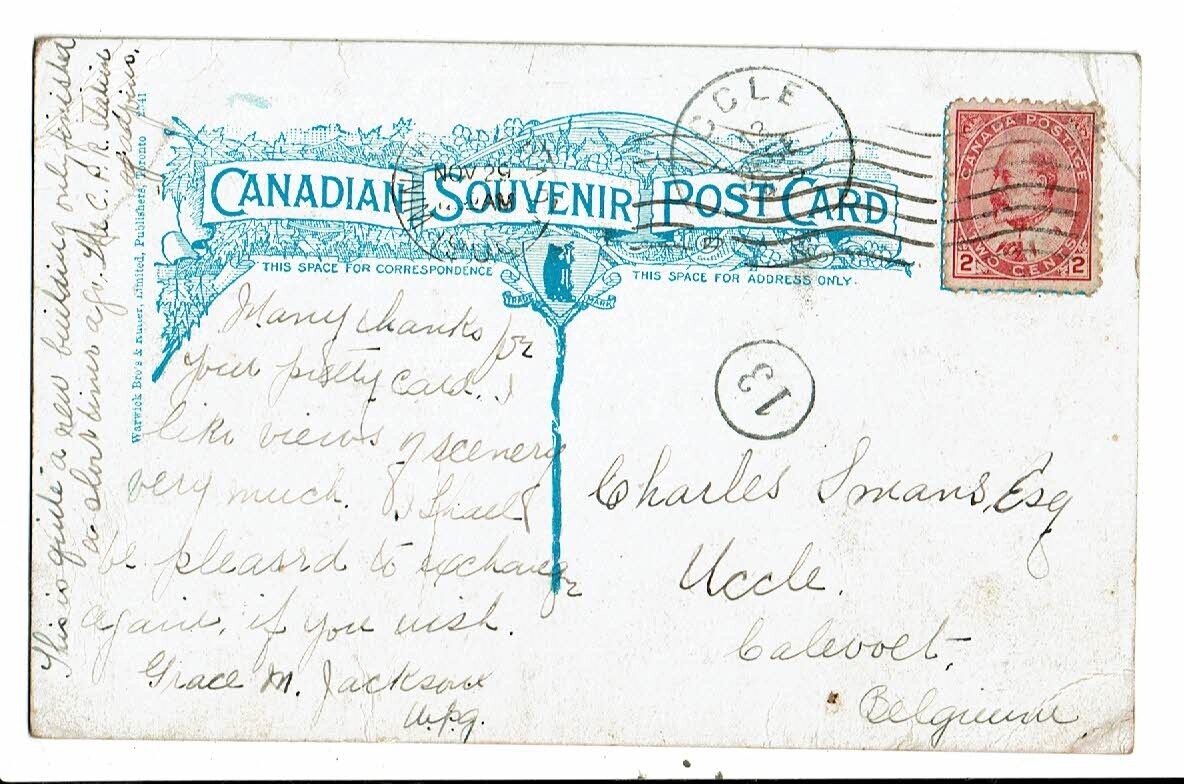 CANADIAN SOUVENIR POST CARD
THIS SPACE FOR CORRESPONDENCE
THIS SPACE FOR ADDRESS ONLY.
TRADE MARK
Warwick Bro's & Rutter, Limited, Publishers, Toronto
NOV 29
AM
UCCLE
CANADA POSTAGE
2 TWO CENTS 2
13
Many thanks for
your pretty card. I
like views of scenery
very much. & Shall
be pleased to exchange
again, if you wish.
Grace M. Jackson
Wpg.
This is quite a new building only finished
a short time ago. The C.P.R.
Charles Smans, Esq
Uccle.
Calevoet,
Belgium